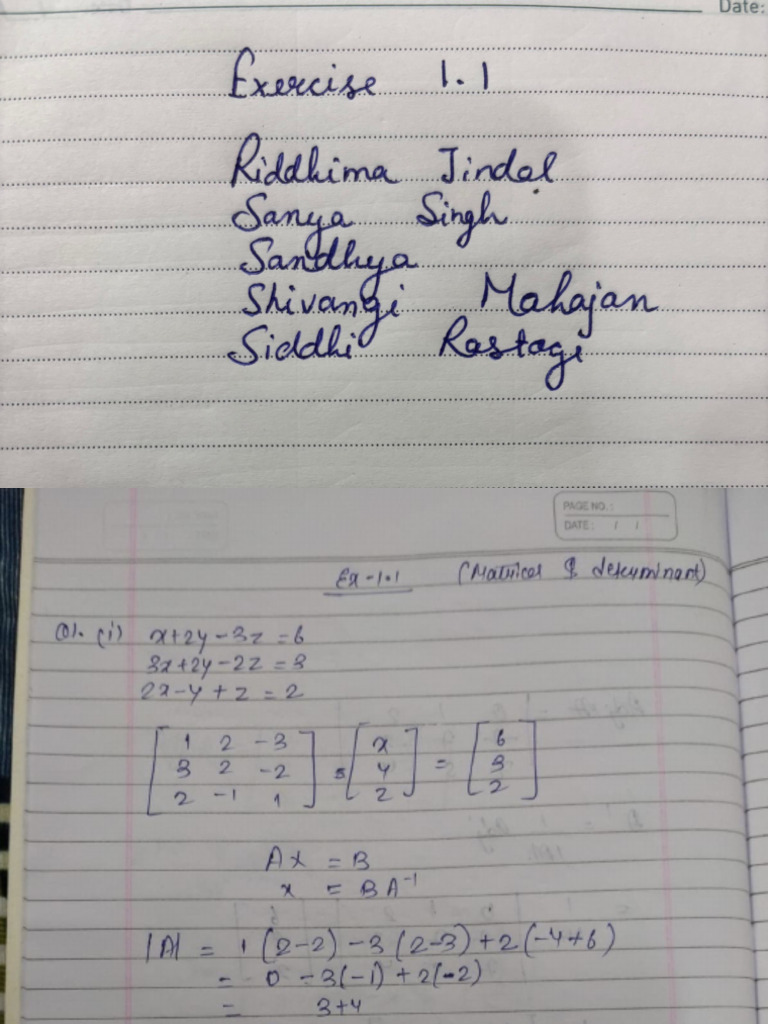 Date:
Exercise 1.1
Riddhima Jindal
Sanya Singh
Sandhya
Shivangi Mahajan
Siddhi Rastogi
PAGE NO.:
DATE: / /
Ex-1.1 (Matrices & determinant)
Q1. (i) x+2y-3z=6
3x+2y-2z=3
2x-y+z=2
[1 2 -3] [x] = [6]
[3 2 -2] [y] [3]
[2 -1 1] [z] [2]
Ax = B
x = BA⁻¹
|A| = 1(2-2)-3(2-3)+2(-4+6)
= 0-3(-1)+2(-2)
= 3+4